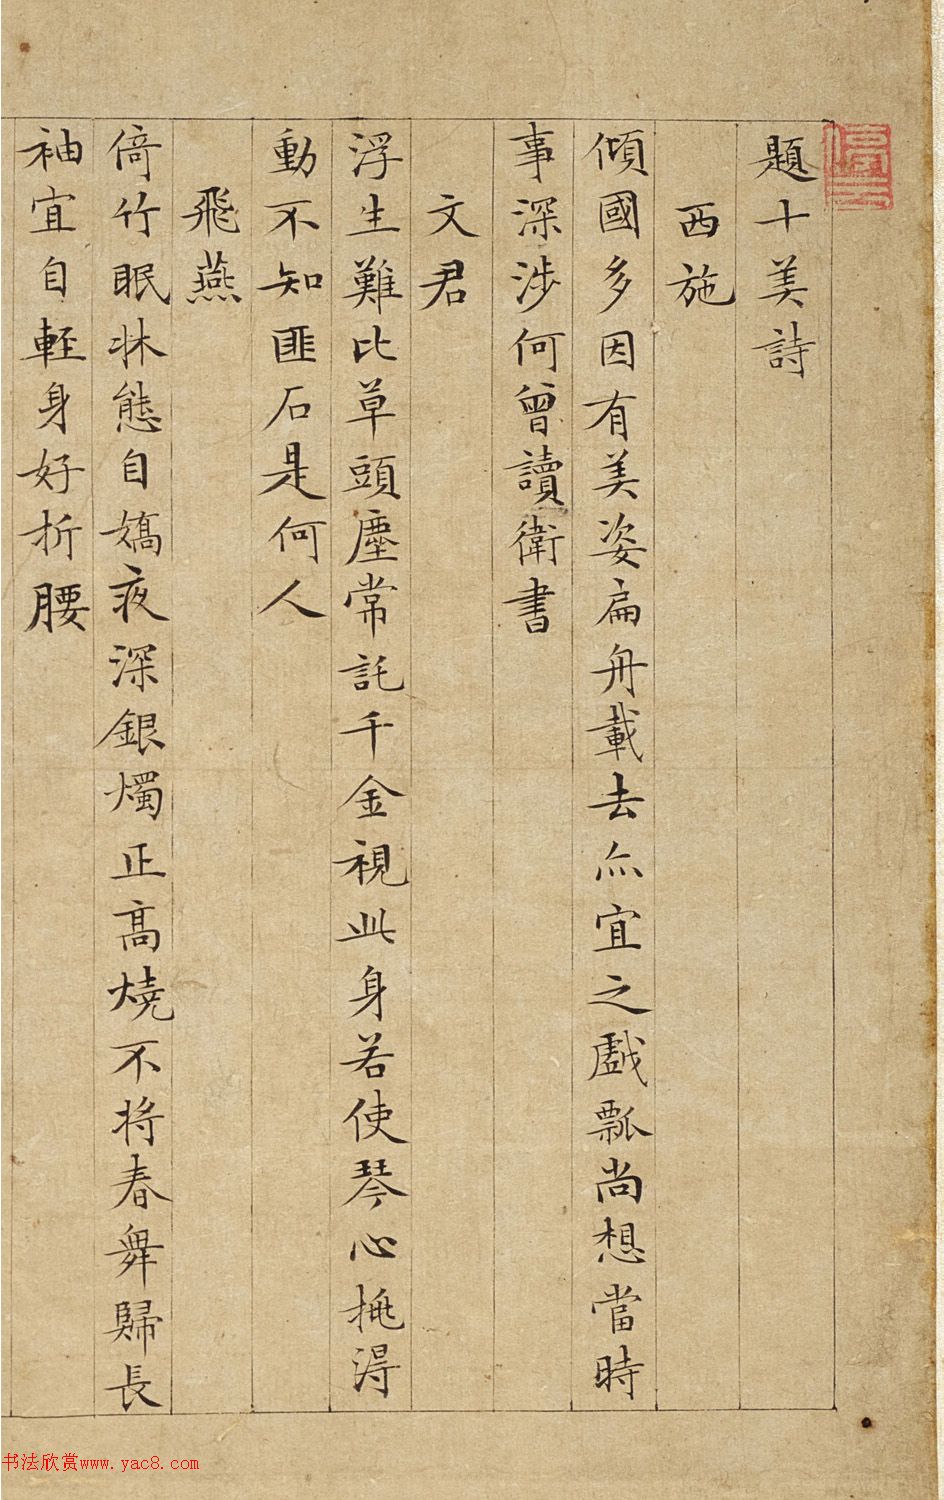 題十美詩
西施
傾國多因有美姿扁舟載去亦宜之戲瓢尚想當時
事深涉何曾讀衛書
文君
浮生難比草頭塵常託千金視此身若使琴心挑淂
動不知匪石是何人
飛燕
倚竹眠牀態自嬌夜深銀燭正高燒不將春舞歸長
袖宜自輕身好折腰
书法欣赏www.yac8.com